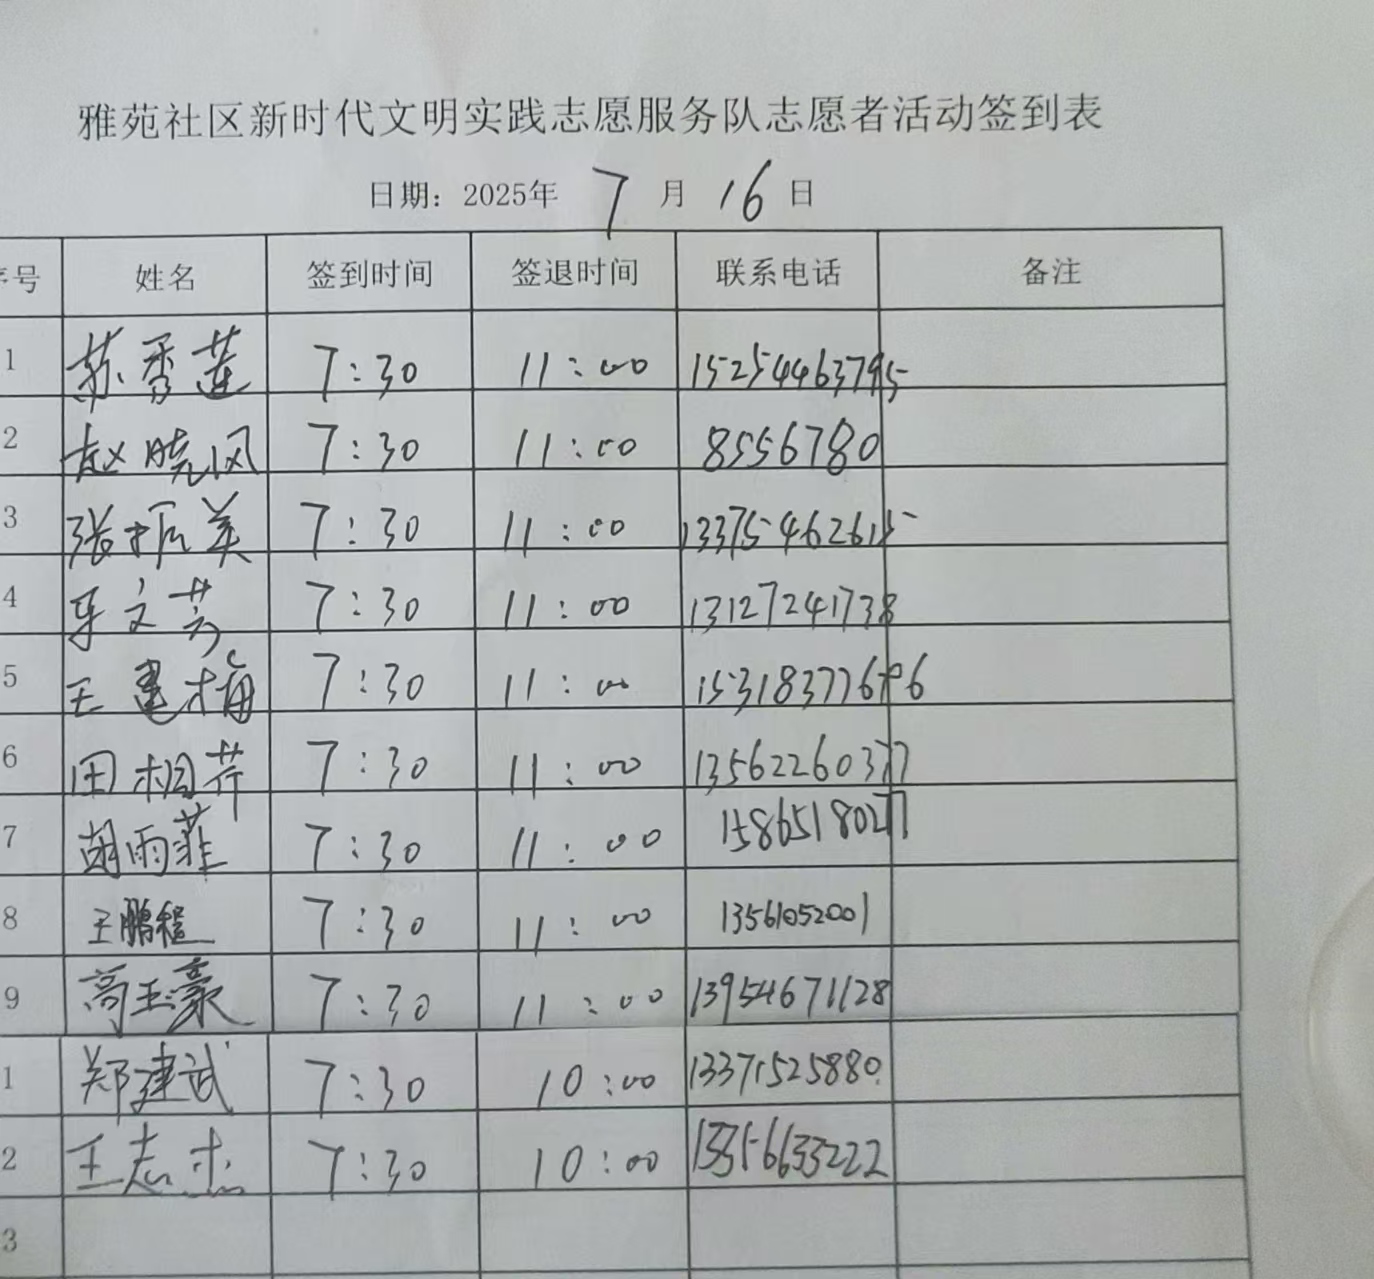 雅苑社区新时代文明实践志愿服务队志愿者活动签到表
日期：2025年 7 月 16 日
序号 姓名 签到时间 签退时间 联系电话 备注
1 苏秀莲 7:30 11:00 15254463795
2 赵晓风 7:30 11:00 8556780
3 张振美 7:30 11:00 13375462615
4 文芳 7:30 11:00 13127241738
5 王建梅 7:30 11:00
6 田桐芹 7:30 11:00 13562260377
7 胡雨菲 7:30 11:00 15865180277
8 王鹏程 7:30 11:00 13561052001
9 高玉豪 7:30 11:00 13954671128
1 郑建武 7:30 10:00 13371525880
2 王志杰 7:30 10:00 13356633222
3